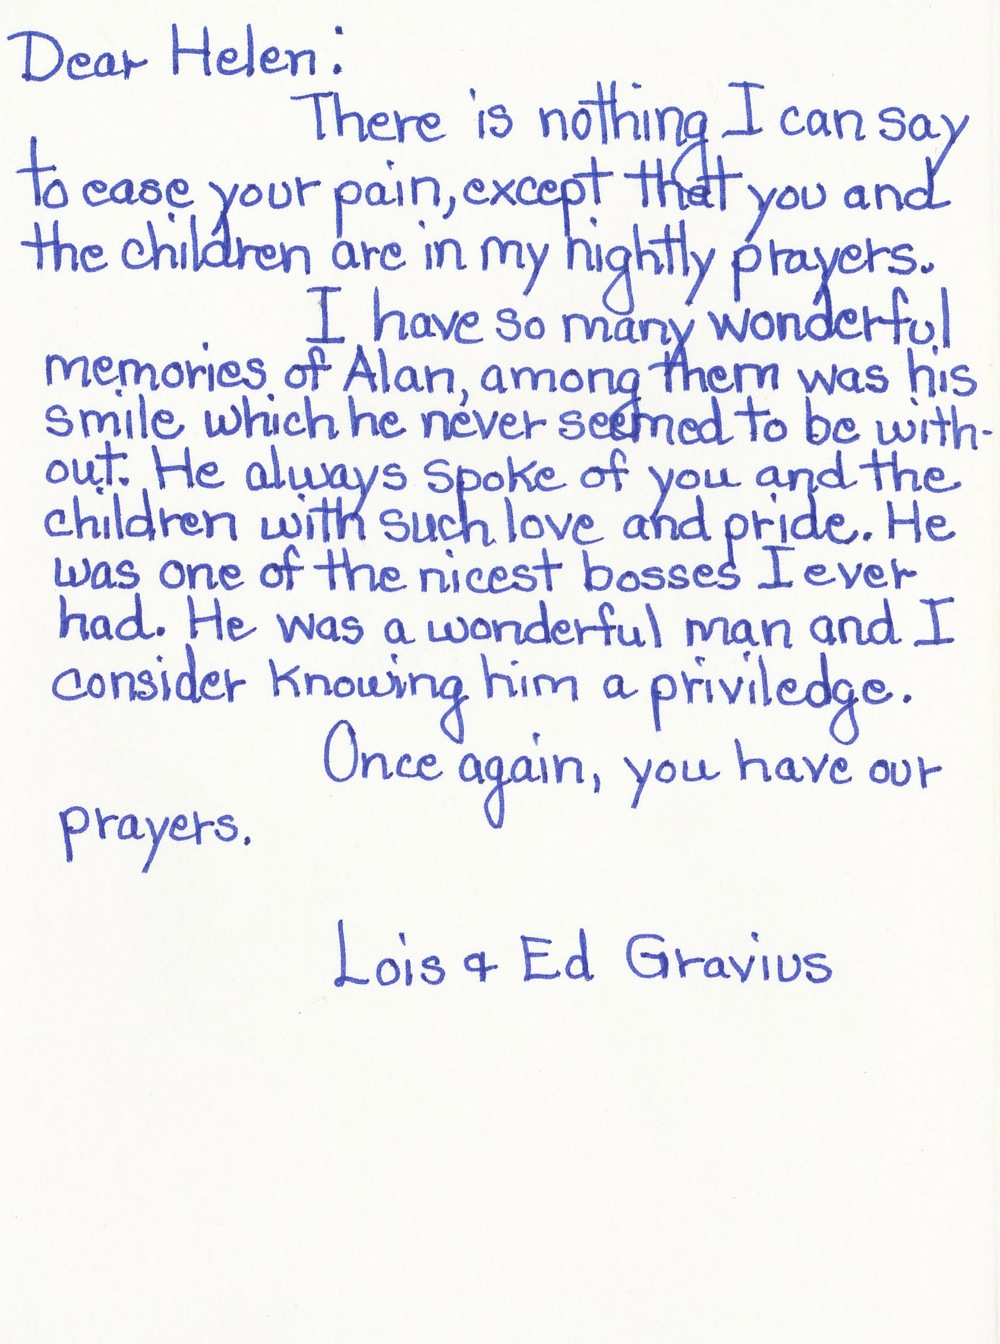 Dear Helen:
There is nothing I can say
to ease your pain, except that you and
the children are in my nightly prayers.
I have so many wonderful
memories of Alan, among them was his
smile which he never seemed to be with-
out. He always spoke of you and the
children with such love and pride. He
was one of the nicest bosses I ever
had. He was a wonderful man and I
consider knowing him a priviledge.
Once again, you have our
prayers.
Lois & Ed Gravius